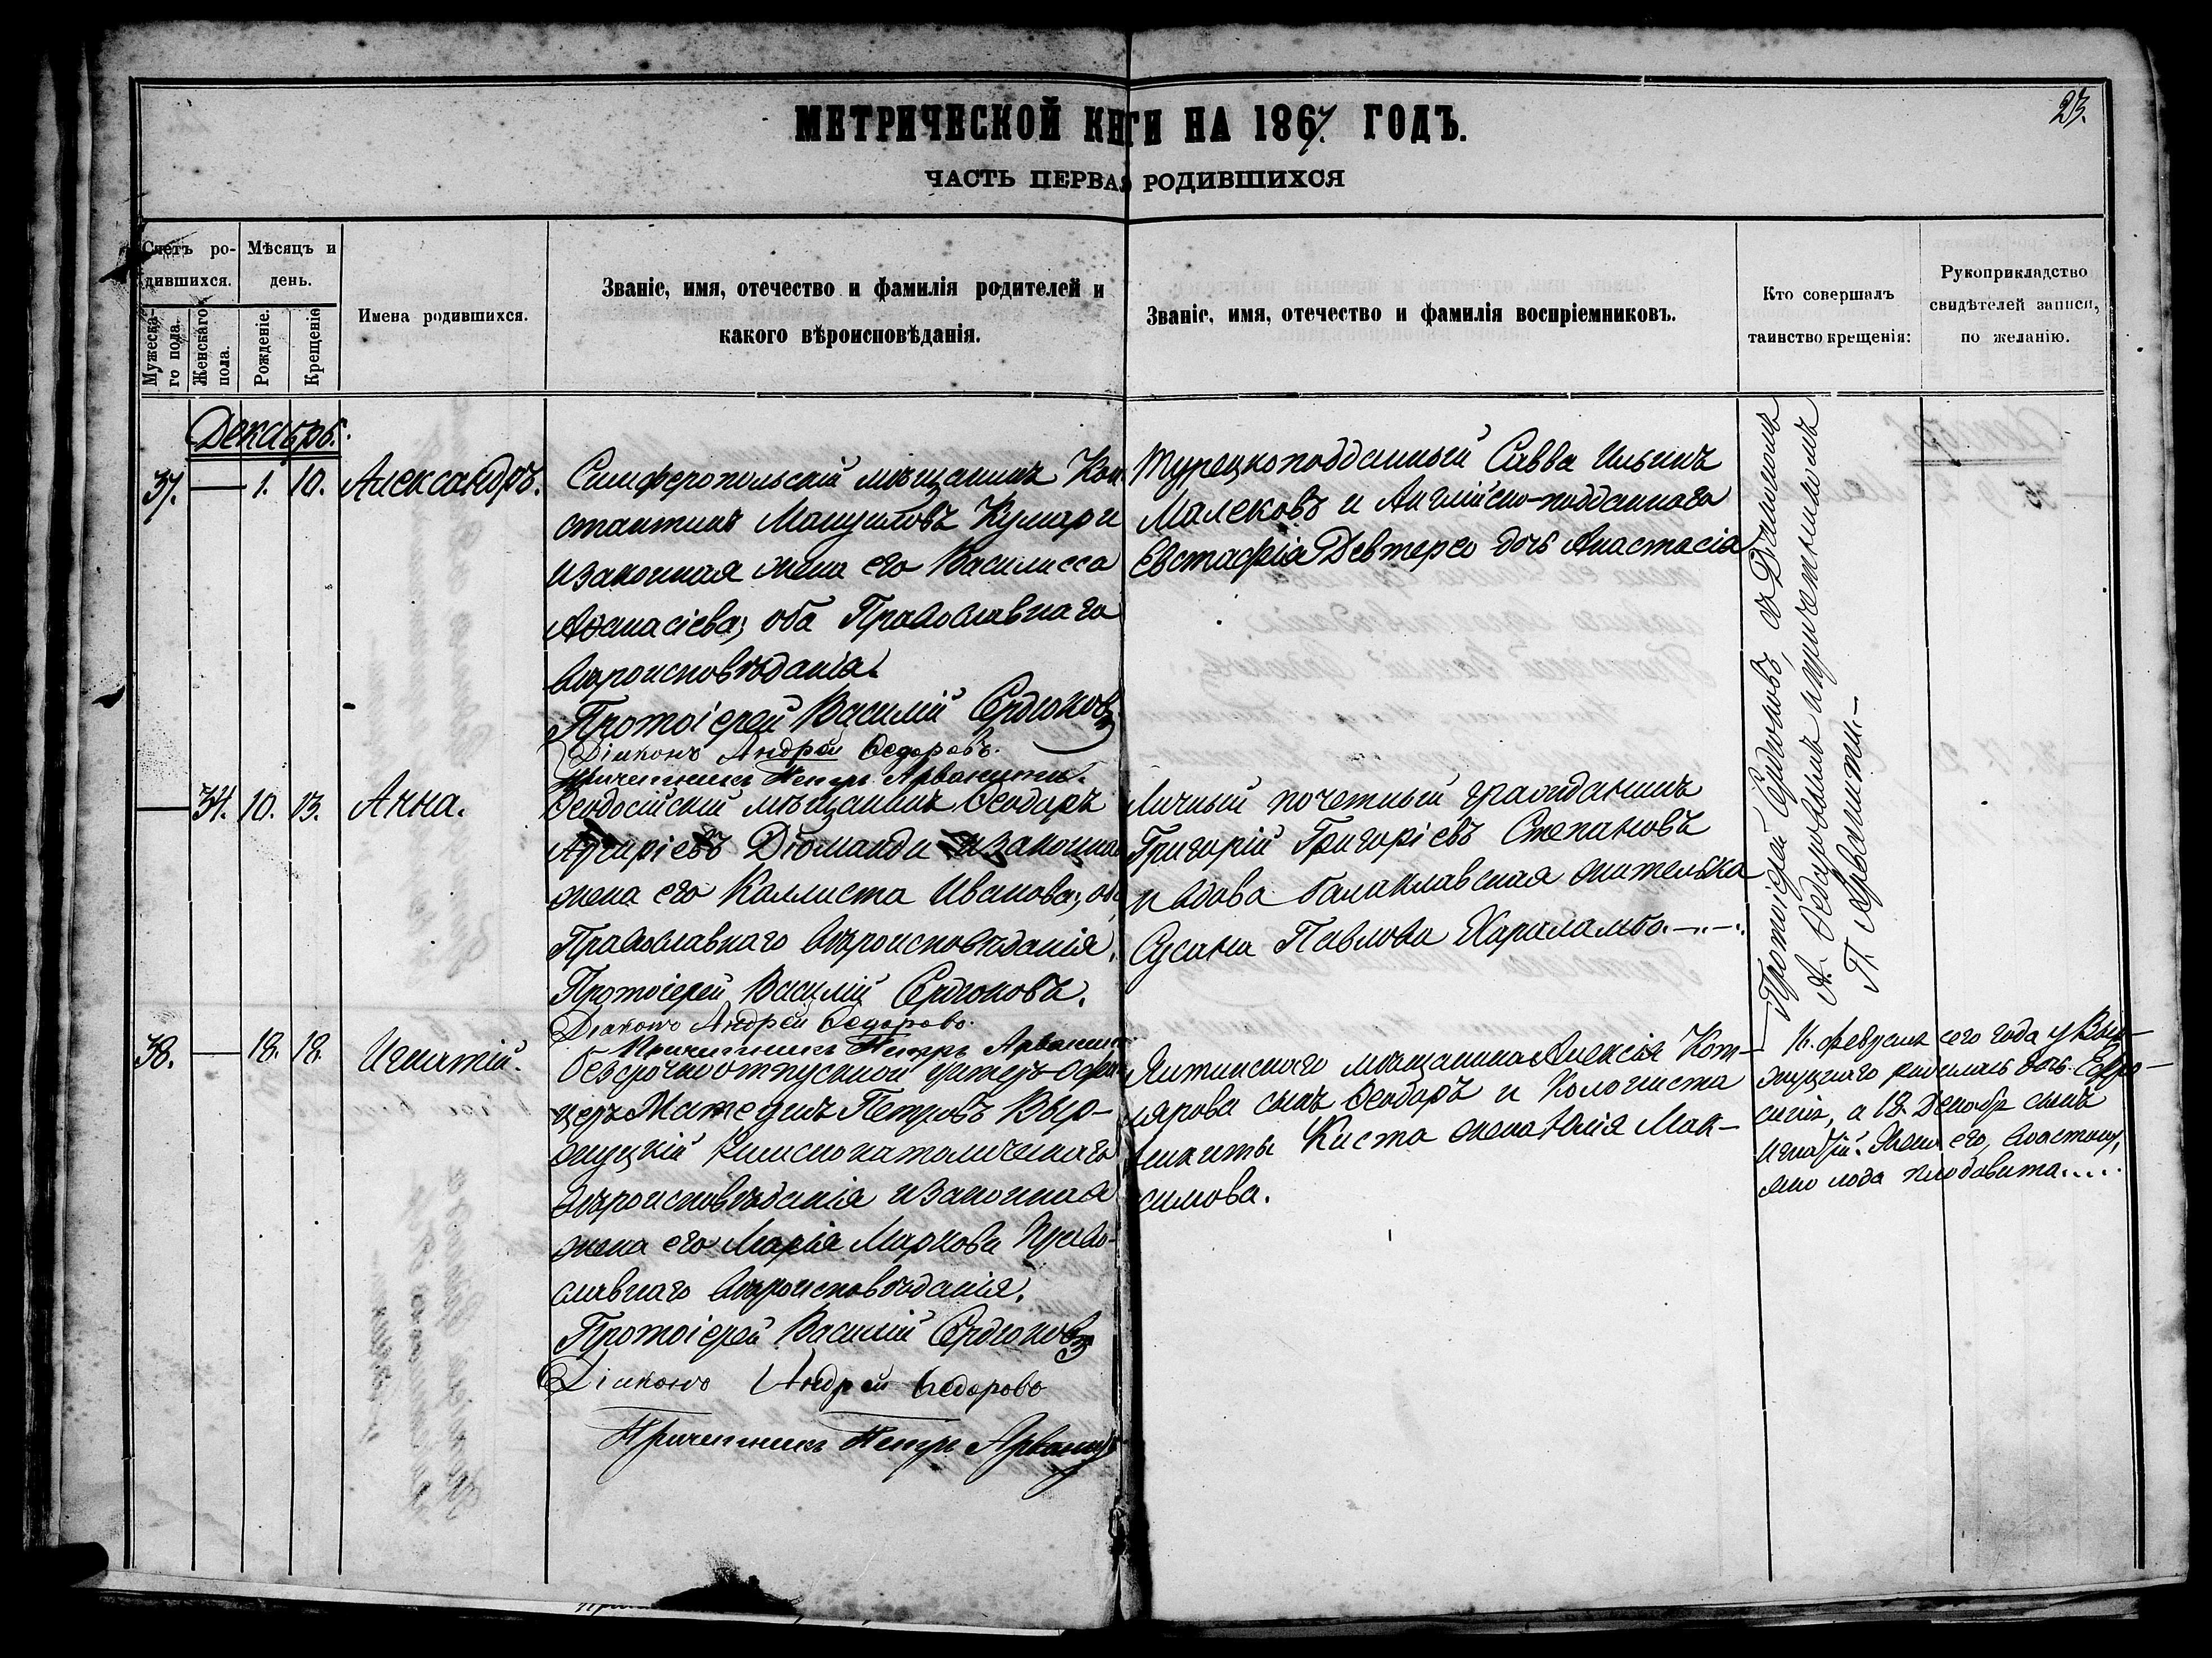 23.
МЕТРИЧЕСКОЙ КНГИ НА 1867. ГОДЪ.
ЧАСТЬ ПЕРВАЯ РОДИВШИХСЯ
Счетъ ро-
дившихся.
Мужеска-
го пола.
Женскаго
пола.
Мѣсяцъ и
день.
Рожденіе.
Крещеніе
Имена родившихся.
Званіе, имя, отечество и фамилія родителей и
какого вѣроисповѣданія.
Званіе, имя, отечество и фамилія воспріемниковъ.
Кто совершалъ
таинство крещенія:
Рукоприкладство
свидѣтелей записи,
по желанію.
Декабрь.
37. — 1. 10. Александръ.
Симферопольскій мѣщанинъ Кон
стантинъ Мануиловъ Кумари
и законная жена его Василисса
Аѳанасіева; оба Православнаго
вѣроисповѣданія.
Протоіерей Василій Сердюковъ
Діаконъ Андрей Ѳедоровъ.
Причетникъ Петръ Арванити.
Турецкоподданный Савва Ильинъ
Малековъ и Англійско-подданнаго
Евстафія Девтерео дочь Анастасія
Протоіерей Сердюковъ, съ Діакономъ
А. Ѳедоровымъ и причетникомъ
П. Арванити.—
— 34. 10. 13. Анна.
Ѳеодосійскій мѣщанинъ Ѳеодоръ
Аргиріевъ Діоманди и законная
жена его Каллиста Иванова; оба
Православнаго вѣроисповѣданія.
Протоіерей Василій Сердюковъ.
Діаконъ Андрей Ѳедоровъ.
Причетникъ Петръ Арванити
Личный почетный гражданинъ
Григорій Григоріевъ Степановъ
и вдова балаклавская жителька
Сусана Павлова Хараламбо.—..—.
38. — 18. 18. Игнатій.
Безсрочноотпускной унтеръ-офи
церъ Матеушъ Петровъ Выр-
жуцкій Римскокатолическаго
вѣроисповѣданія и законная
жена его Марія Маркова Право-
славнаго вѣроисповѣданія.
Протоіерей Василій Сердюковъ
Діаконъ Андрей Ѳедоровъ
Причетникъ Петръ Арванити
мѣщанина Алексѣя Кот-
лярова сынъ Ѳеодоръ и Колониста
Никиты Киста жена Юлія Мак-
симова.
16. февраля сего года у Выр-
жуцкаго родилась дочь Евфро-
синія, а 18. Декабря сынъ
Игнатій. Жена его,
плодовита.....